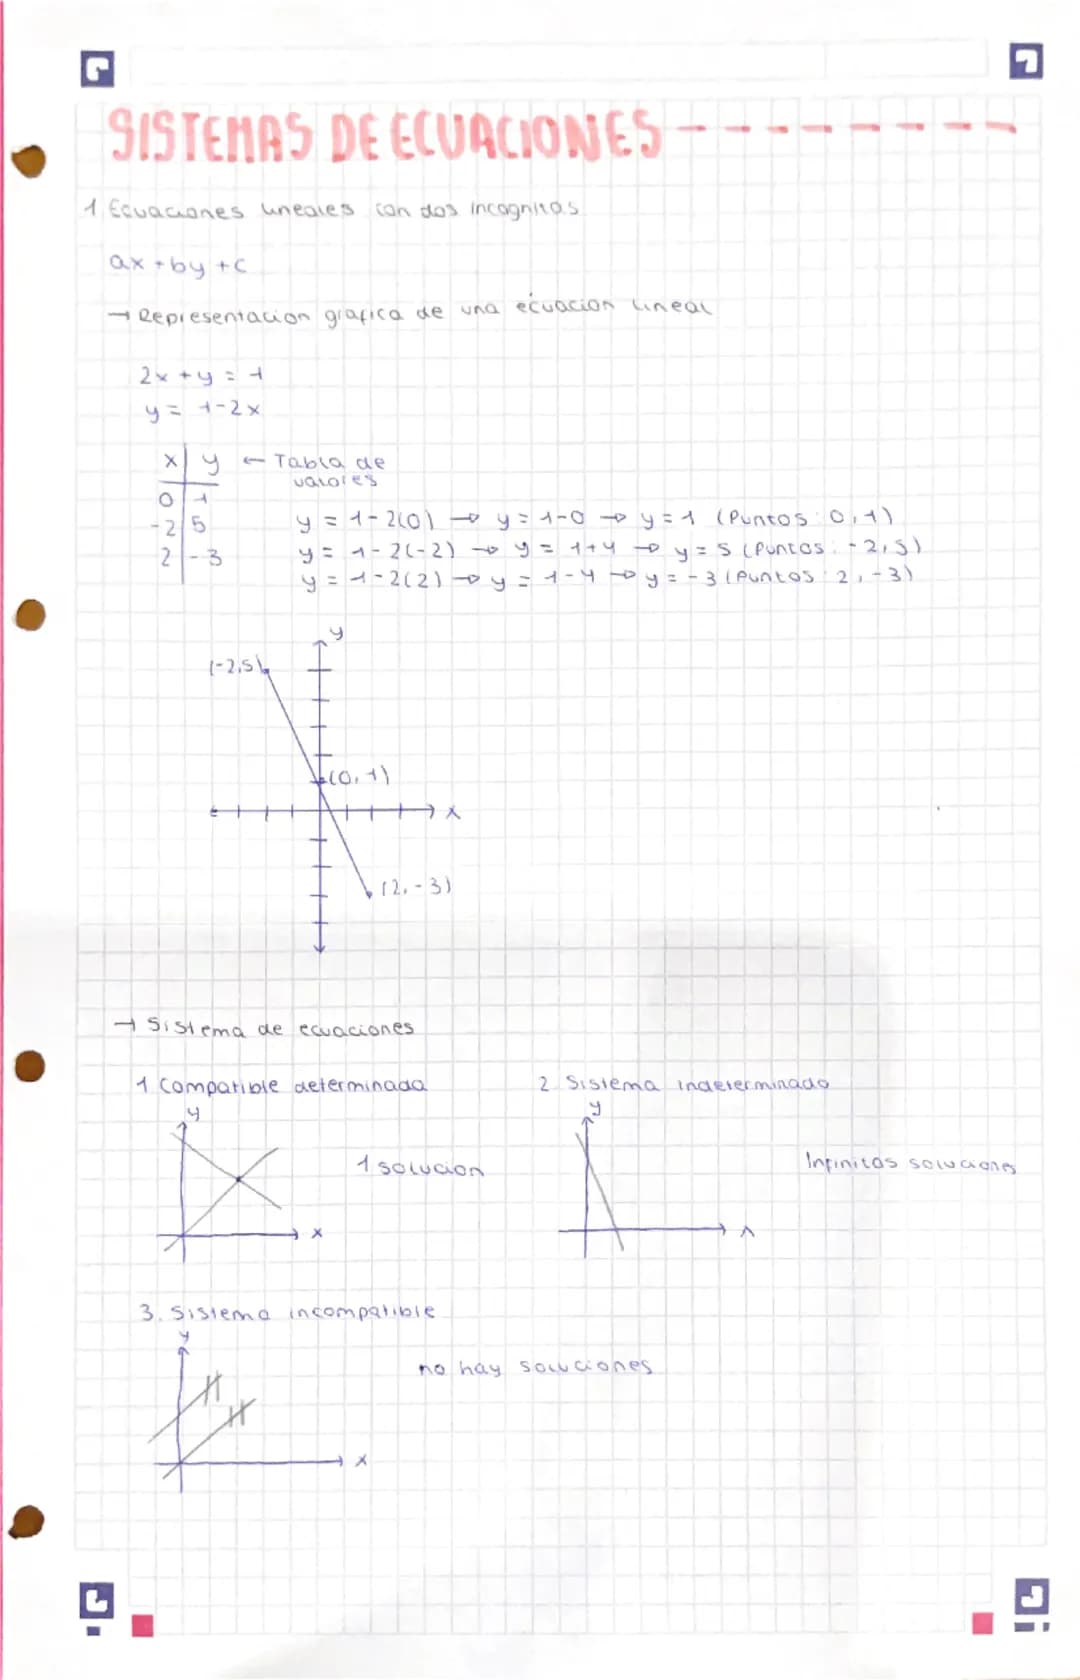 SISTEMAS DE ECUACIONES
1 Ecuaciones lineales con dos incognitas
ax + by + c
→ Representacion grafica de una ecuacion lineal
2x + y = 1
y = 1-2x
x y ← Tabla de
valores
0 1
-2 5
2 -3
y = 1-2(0) → y = 1-0 → y = 1 (Puntos: 0,1)
y = 1-2(-2) → y = 1+4 → y = 5 (Puntos: -2,5)
y = 1-2(2) → y = 1-4 → y = -3 (Puntos: 2,-3)
y
(-2,5)
(0,1)
x
(2,-3)
→ Sistema de ecuaciones
1 Compatible determinada
y
1 solucion
x
2 Sistema indeterminado
y
Infinitas soluciones
x
3. Sistema incompatible
y
no hay soluciones
x